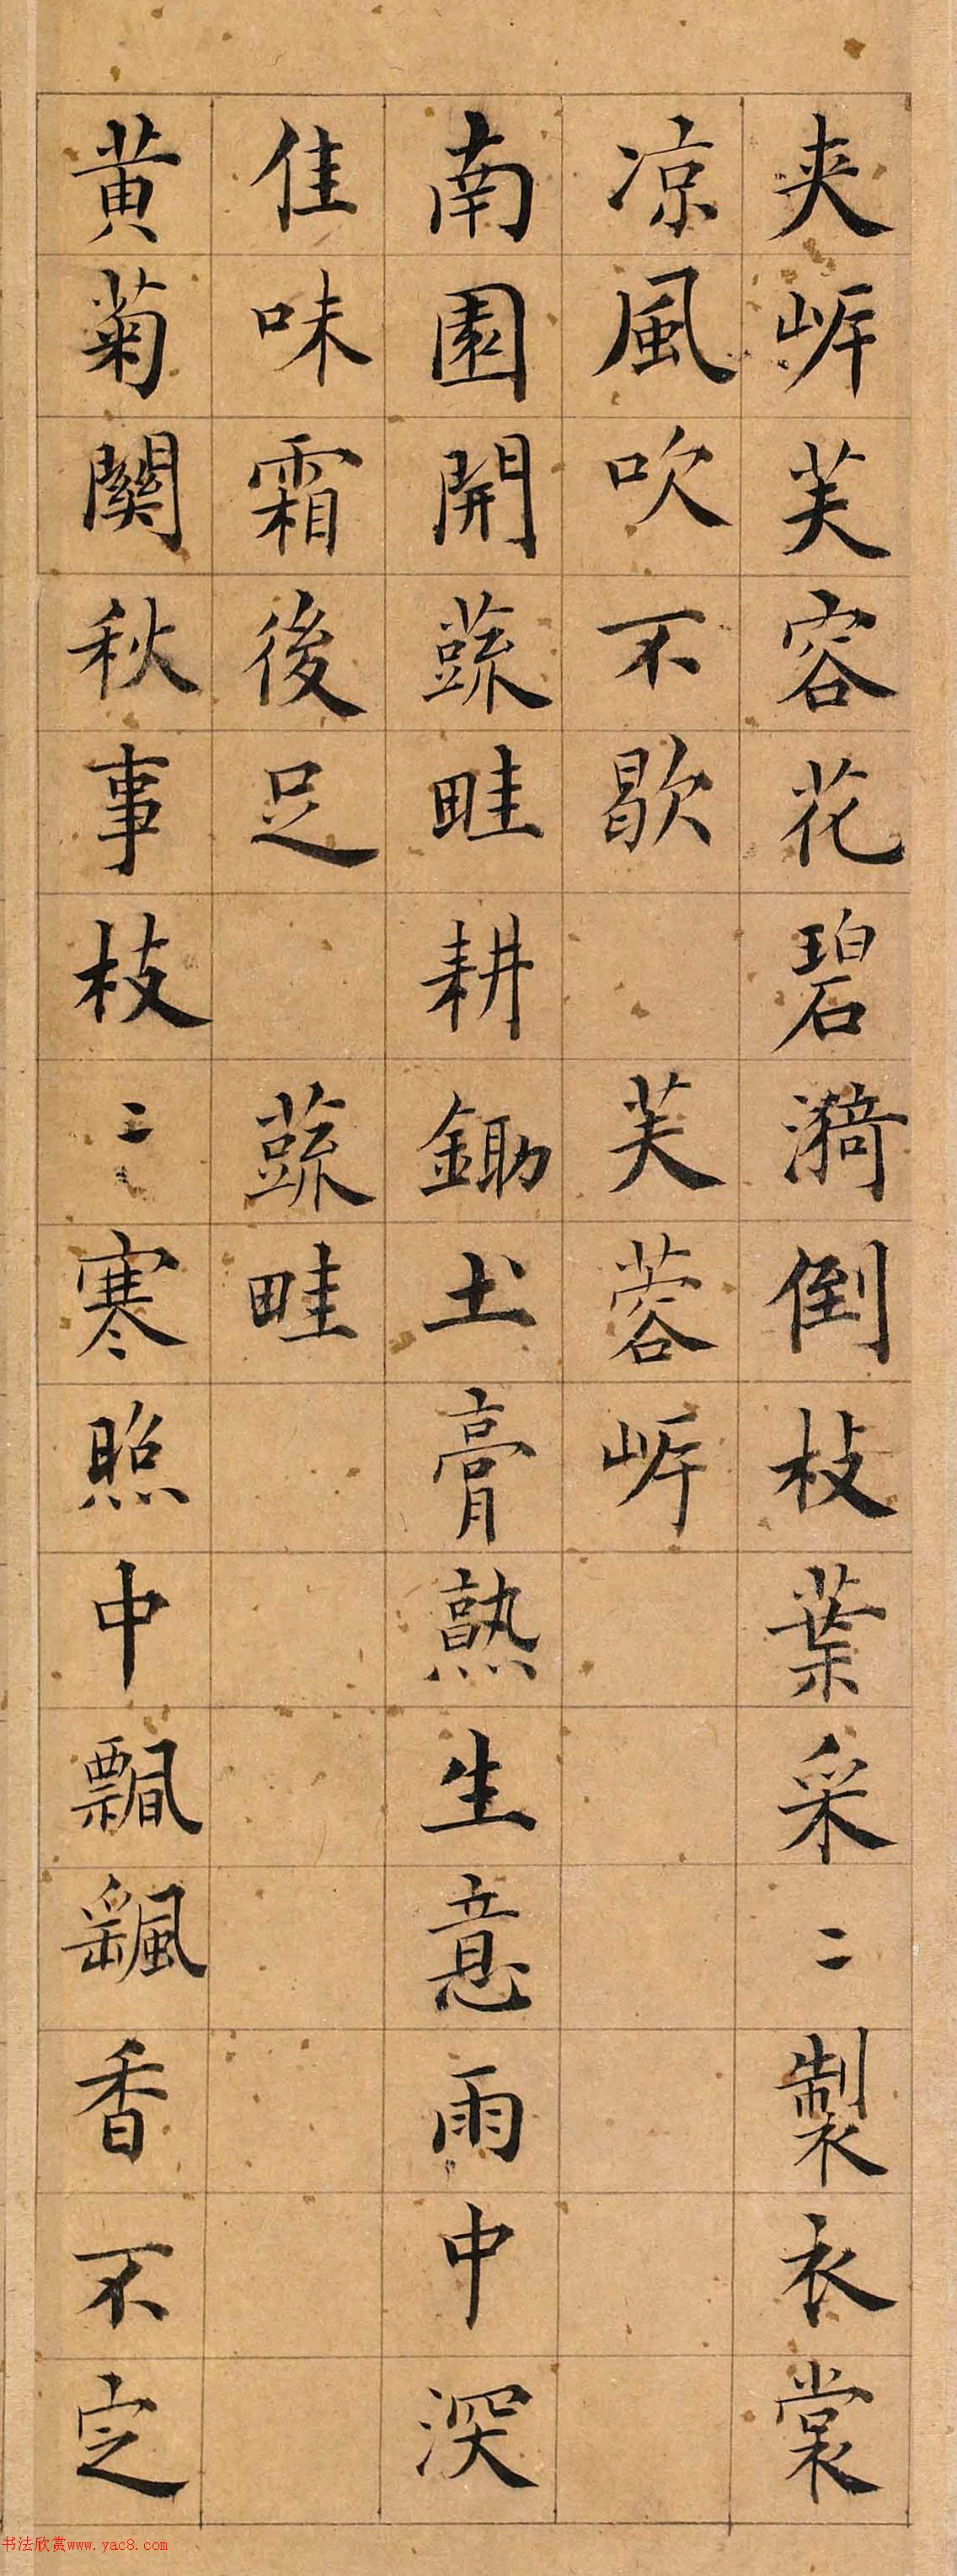 夾岸芙容花碧漪倒枝葉采〻製衣裳
凉風吹不歇　芙蓉岸
南園開蔬畦耕鋤土膏熟生意雨中深
佳味霜後足　蔬畦
黄菊闗秋事枝〻寒照中飄颻香不定
书法欣赏www.yac8.com